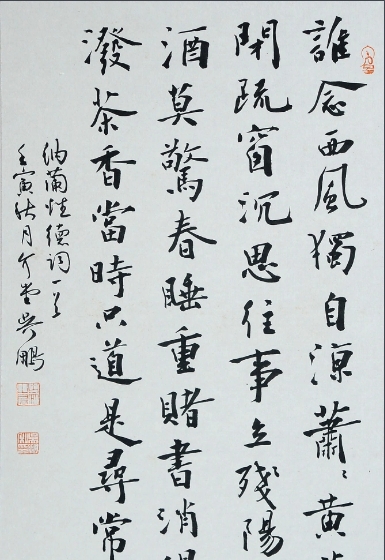 誰念西風獨自涼蕭〻黃
閉疏窗沉思往事立殘陽
酒莫驚春睡重賭書消
潑茶香當時只道是尋常
納蘭性德詞一首
壬寅秋月介堂吳鵬